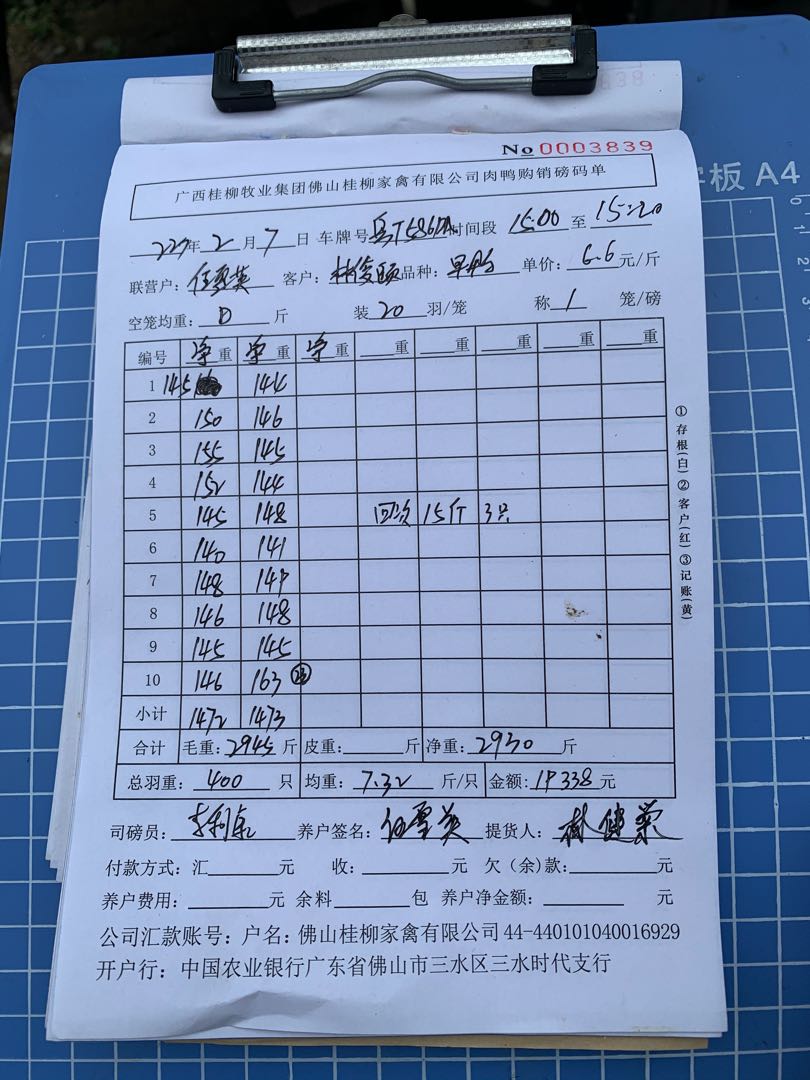 板 A4
No 0003839
广西桂柳牧业集团佛山桂柳家禽有限公司肉鸭购销磅码单
年 2 月 7 日 车牌号 时间段 15:00 至 15:20
联营户: 英 客户: 林俊颐 品种: 单价: 6.6 元/斤
空笼均重: 0 斤 装 20 羽/笼 称 1 笼/磅
编号 净重 净重 净重 重 重 重 重 重
1 145 144
2 150 146
3 155 145
4 152 144
5 145 148 回次 15斤 3只
6 140 141
7 148 149
8 146 148
9 145 145
10 146 163 23
小计 1472 1473
合计 毛重: 2945 斤 皮重: 斤 净重: 2930 斤
总羽重: 400 只 均重: 7.32 斤/只 金额: 19338 元
司磅员: 李利 养户签名: 英 提货人: 林健荣
付款方式: 汇 元 收: 元 欠（余）款: 元
养户费用: 元 余料 包 养户净金额: 元
公司汇款账号: 户名: 佛山桂柳家禽有限公司 44-440101040016929
开户行: 中国农业银行广东省佛山市三水区三水时代支行
①存根(白)②客户(红)③记账(黄)